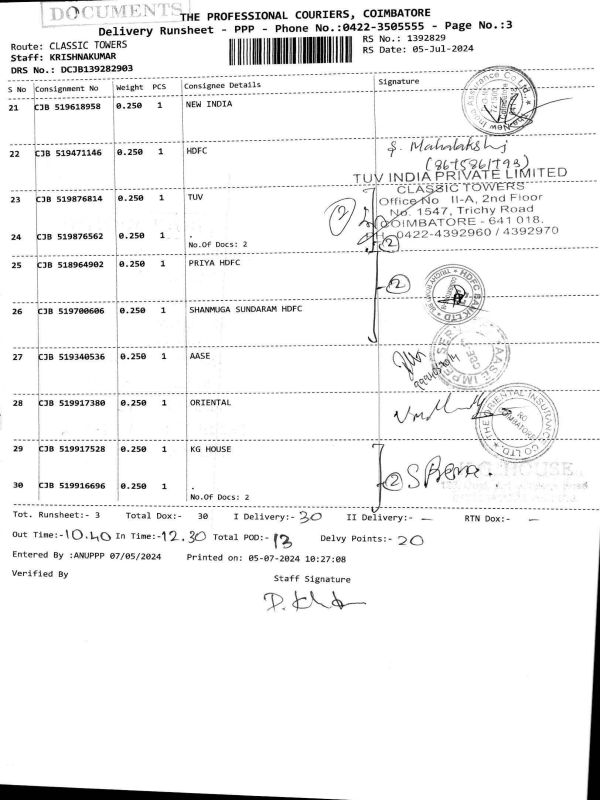 DOCUMENTS
THE PROFESSIONAL COURIERS, COIMBATORE
Delivery Runsheet - PPP - Phone No.:0422-3505555 - Page No.:3
Route: CLASSIC TOWERS
RS No.: 1392829
Staff: KRISHNAKUMAR
RS Date: 05-Jul-2024
DRS No.: DCJB139282903
S No Consignment No Weight PCS Consignee Details Signature
21 CJB 519618958 0.250 1 NEW INDIA
22 CJB 519471146 0.250 1 HDFC
S. Mahalakshmi
TUV INDIA PRIVATE LIMITED
CLASSIC TOWERS
23 CJB 519876814 0.250 1 TUV
Office No II-A, 2nd Floor
No. 1547, Trichy Road
2
COIMBATORE - 641 018.
PH 0422-4392960 / 4392970
24 CJB 519876562 0.250 1 .
No.Of Docs: 2
2
25 CJB 518964902 0.250 1 PRIYA HDFC
2
HDFC BANK LTD
26 CJB 519700606 0.250 1 SHANMUGA SUNDARAM HDFC
27 CJB 519340536 0.250 1 AASE
28 CJB 519917380 0.250 1 ORIENTAL
THE ORIENTAL INSURANCE CO LTD
RO
COIMBATORE
29 CJB 519917528 0.250 1 KG HOUSE
2
30 CJB 519916696 0.250 1 .
No.Of Docs: 2
Tot. Runsheet:- 3 Total Dox:- 30 I Delivery:- 30 II Delivery:- - RTN Dox:- -
Out Time:-10.40 In Time:-12.30 Total POD:- 13 Delvy Points:- 20
Entered By :ANUPPP 07/05/2024 Printed on: 05-07-2024 10:27:08
Verified By
Staff Signature